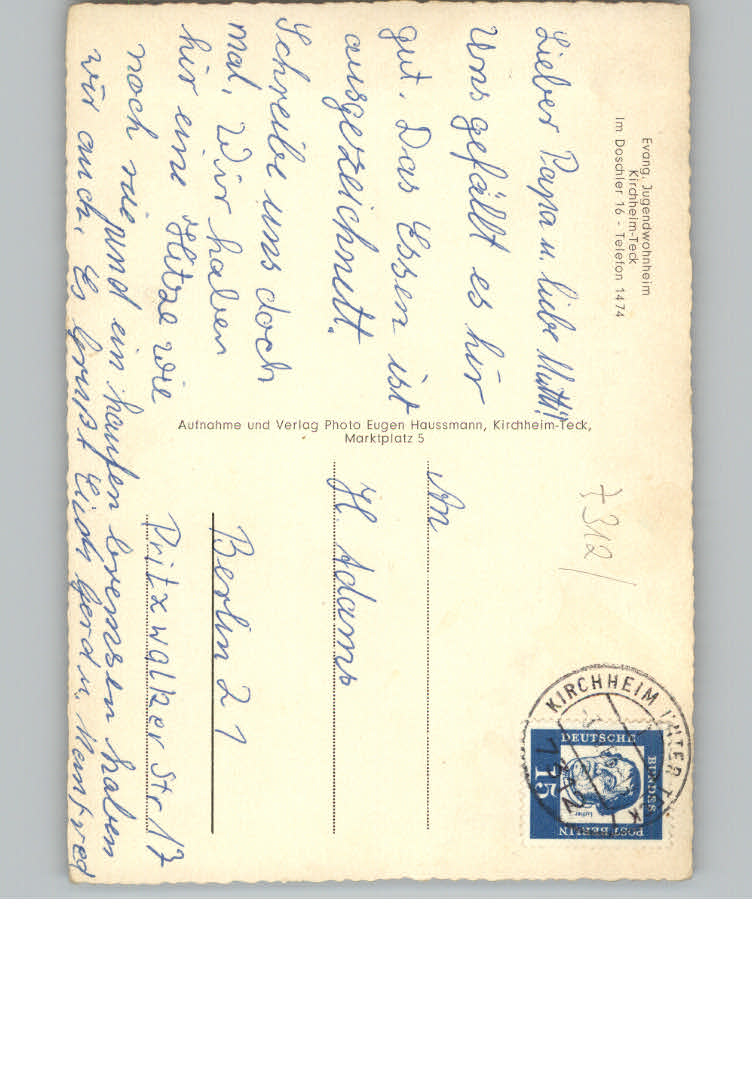 Evang. Jugendwohnheim
Kirchheim-Teck
Im Doschler 16 - Telefon 1474
Lieber Papa u. liebe Mutti!
Uns gefällt es hir
gut. Das Essen ist
ausgezeichnett.
Schreibe uns doch
mal. Wir haben
hir eine Hitze wie
noch nie und ein haufen bremsen haben
wir auch. Es grüßt Euch Gerd u. Manfred
Aufnahme und Verlag Photo Eugen Haussmann, Kirchheim-Teck,
Marktplatz 5
7312/
KIRCHHEIM UNTER TECK
7312
DEUTSCHE
BUNDES
POST BERLIN
15
Luther
An
H. Adams
Berlin 21
Pritzwalker Str 17